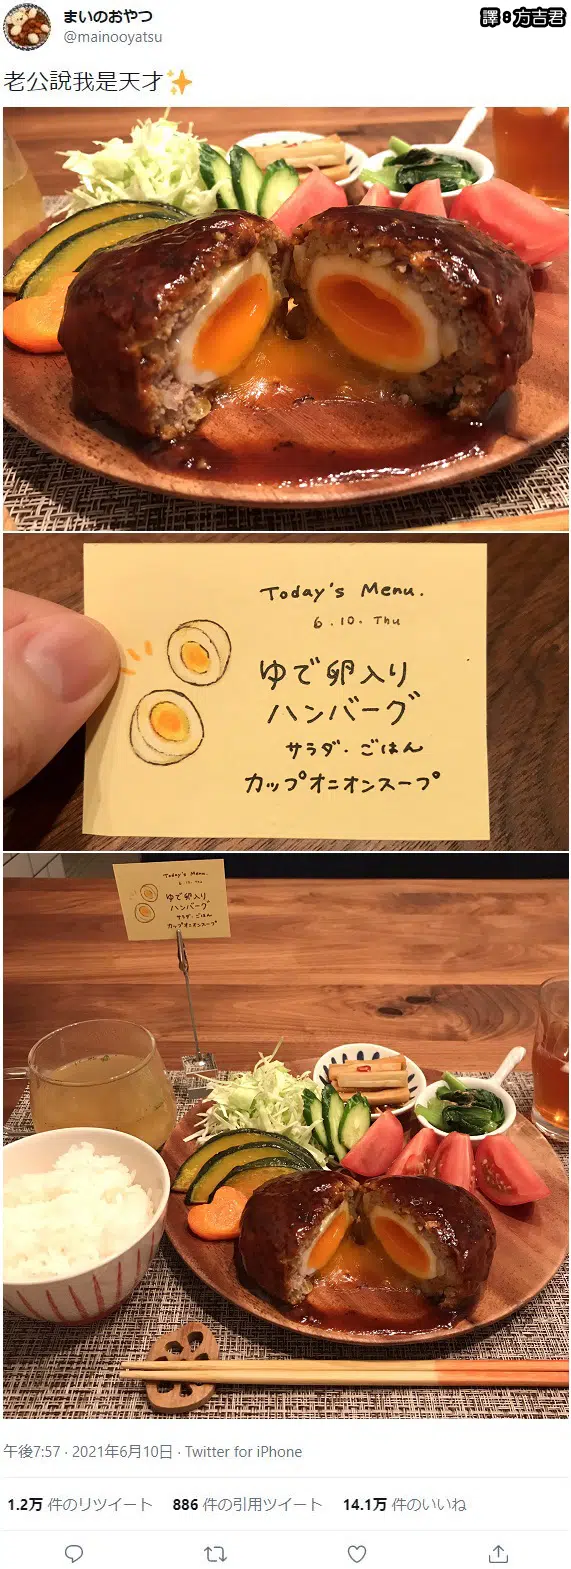 まいのおやつ
@mainooyatsu
譯:方吉君
老公說我是天才✨
Today's Menu.
6.10. Thu
ゆで卵入り
ハンバーグ
サラダ・ごはん
カップオニオンスープ
Today's Menu.
6.10. Thu
ゆで卵入り
ハンバーグ
サラダ・ごはん
カップオニオンスープ
午後7:57 · 2021年6月10日 · Twitter for iPhone
1.2万 件のリツイート 886 件の引用ツイート 14.1万 件のいいね